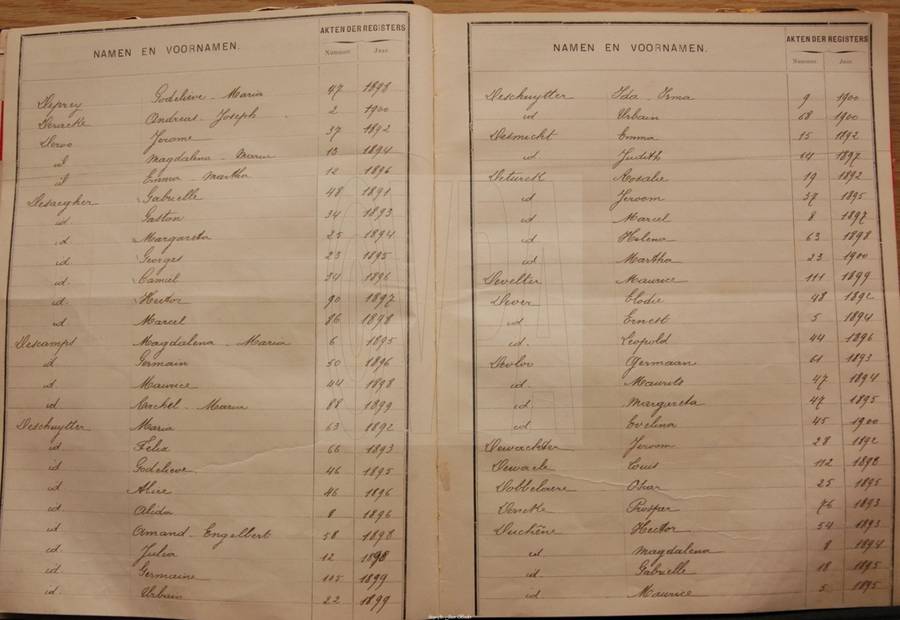 NAMEN EN VOORNAMEN. AKTEN DER REGISTERS
Nummer Jaar
Deprey Godelieve - Maria 47 1898
Deracke Andreas - Joseph 2 1900
Deroo Jerome 37 1892
id Magdalena - Maria 13 1894
id Emma - Martha 12 1896
Desaegher Gabrielle 48 1891
id. Gaston 34 1893
id. Margareta 25 1894
id. Georges 23 1895
id. Camiel 34 1896
id. Hector 90 1897
id Marcel 86 1898
Descamps Magdalena - Maria 6 1895
id Germain 50 1896
id Maurice 44 1898
id. Rachel - Maria 88 1899
Deschuytter Maria 63 1892
id Felix 66 1893
id Godelieve 46 1895
id Alice 46 1896
id Alida 8 1896
id Amand - Engelbert 58 1898
id. Julia 12 1898
id. Germaine 105 1899
id. Urbain 22 1899
NAMEN EN VOORNAMEN. AKTEN DER REGISTERS
Nummer Jaar
Deschuytter Ida - Irma 9 1900
id Urbain 68 1900
Desmicht Emma 15 1892
id Judith 14 1897
Deturck Rosalie 19 1892
id Jeroom 37 1895
id Marcel 8 1897
id Helena 63 1898
id Martha 23 1900
Develter Maurice 111 1899
Dever Elodie 48 1892
id Ernest 5 1894
id. Leopold 44 1896
Devloo Germaan 61 1893
id. Maurits 47 1894
id. Margareta 47 1895
id. Evelina 45 1900
Dewachter Jeroom 28 1892
Dewaele Louis 112 1898
Dobbelaere Oscar 25 1895
Prosper 76 1893
Duchêne Hector 54 1893
id. Magdalena 8 1894
id Gabrielle 18 1895
id Maurice 5 1895